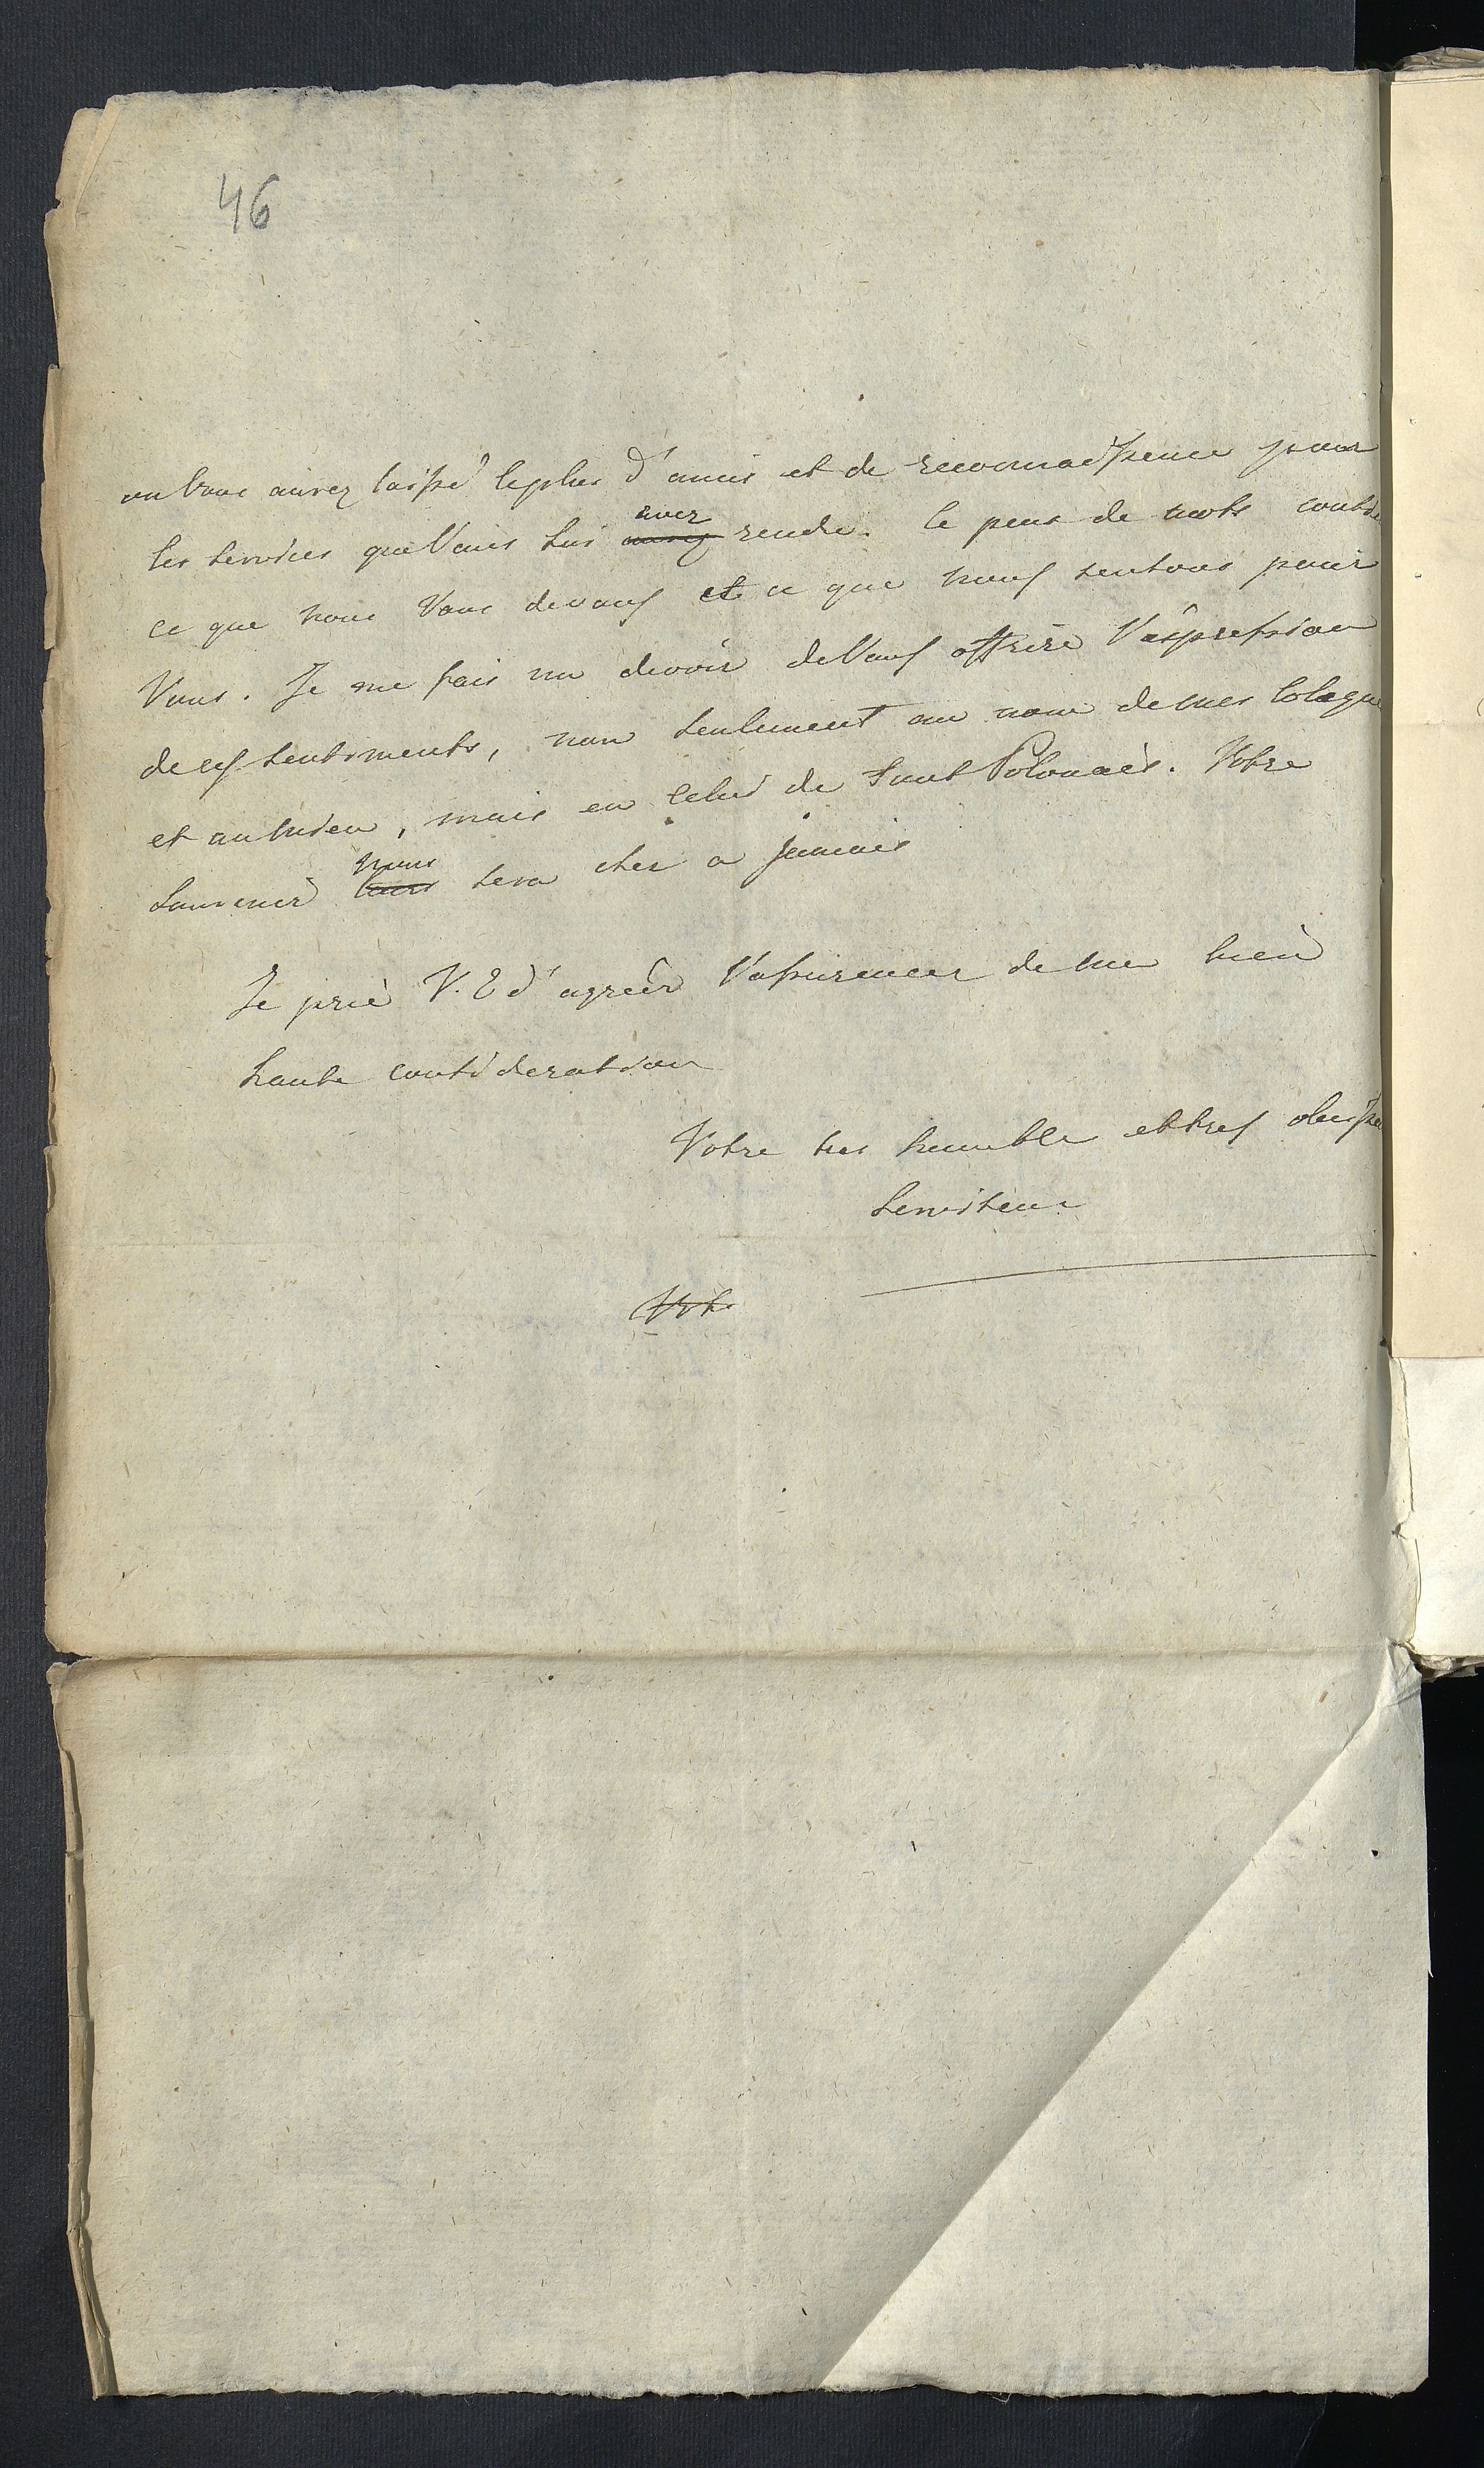 46
ou Vous aurez laissé le plus d'amis et de reconnaissence pour
les services que Vous lui avez rendu. Ce peut de mots contie
ce que nous Vous devons et ce que nous sentons pour
Vous. Je me fais un devoir de Vous offrire l'expression
de ces sentiments, non seulement au nom de mes Colegue
et au mien, mais en celui de tout Polonais. Votre
souvenir nous sera cher a jamais
Je prie V. E d'agréer l'assurence de ma bien
haute consideration
Votre tres humble et tres obeisse
Serviteur